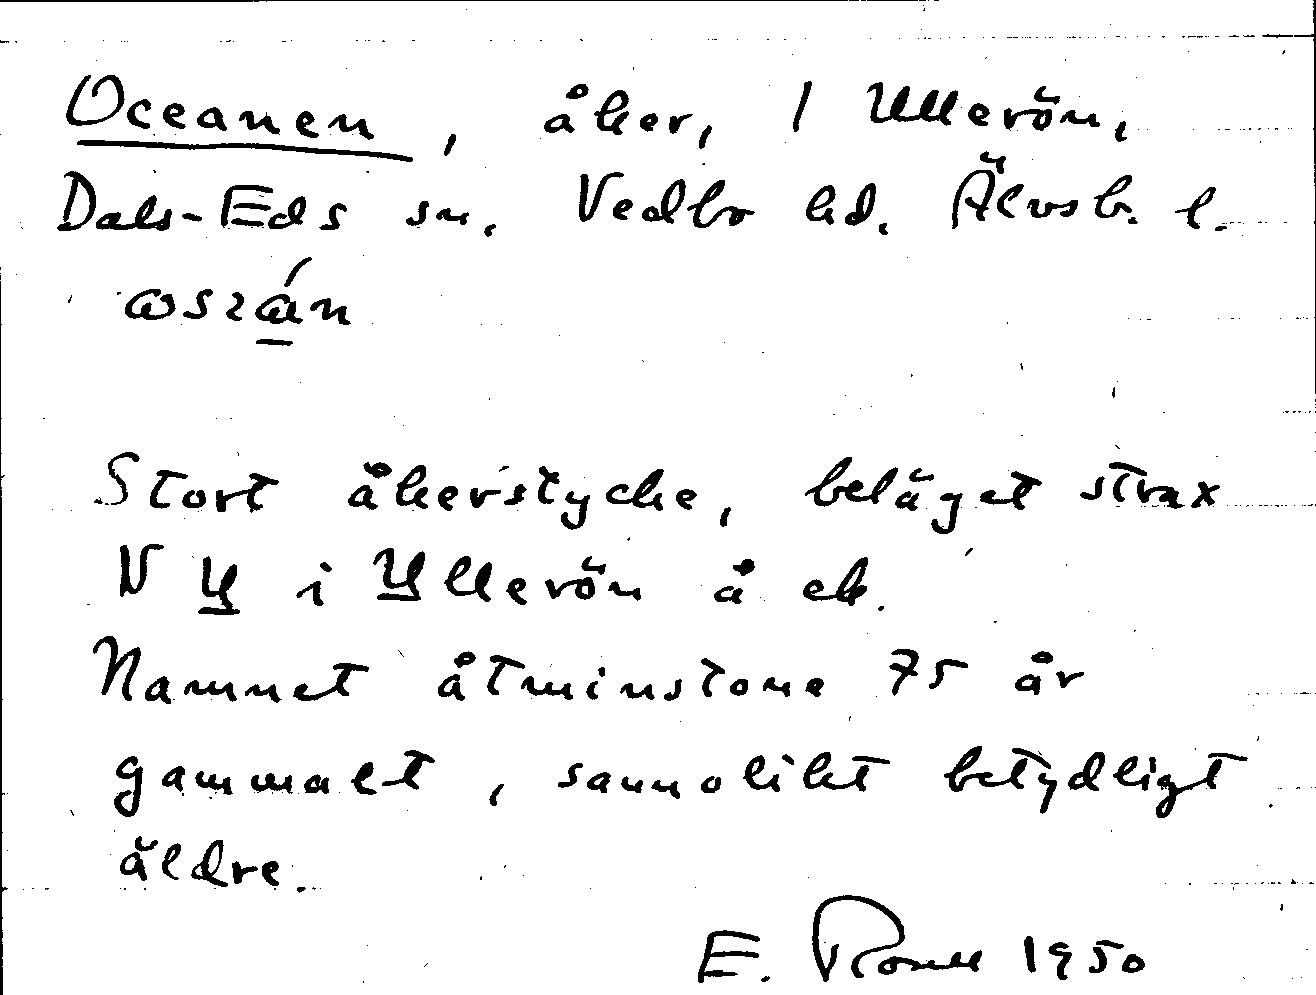 Oceanen, åker, 1 Ullerön,
Dals-Eds sn. Vedbo hd. Älvsb. l.
Stort åkerstycke, beläget strax
N Y i Yllerön å ek.
Namnet åtminstone 75 år
gammalt, sannolikt betydligt
äldre.
E. 1950